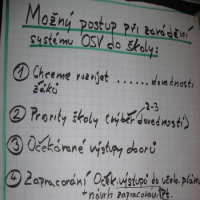 Možný postup při zavádění
systému OSV do školy:
① Chceme rozvíjet ...... dovednosti
žáků
2-3
② Priority školy (výběr dovedností)
③ Očekávané výstupy oborů
④ Zapracování Oček. výstupů do učeb. plánu
návrh zapracov.